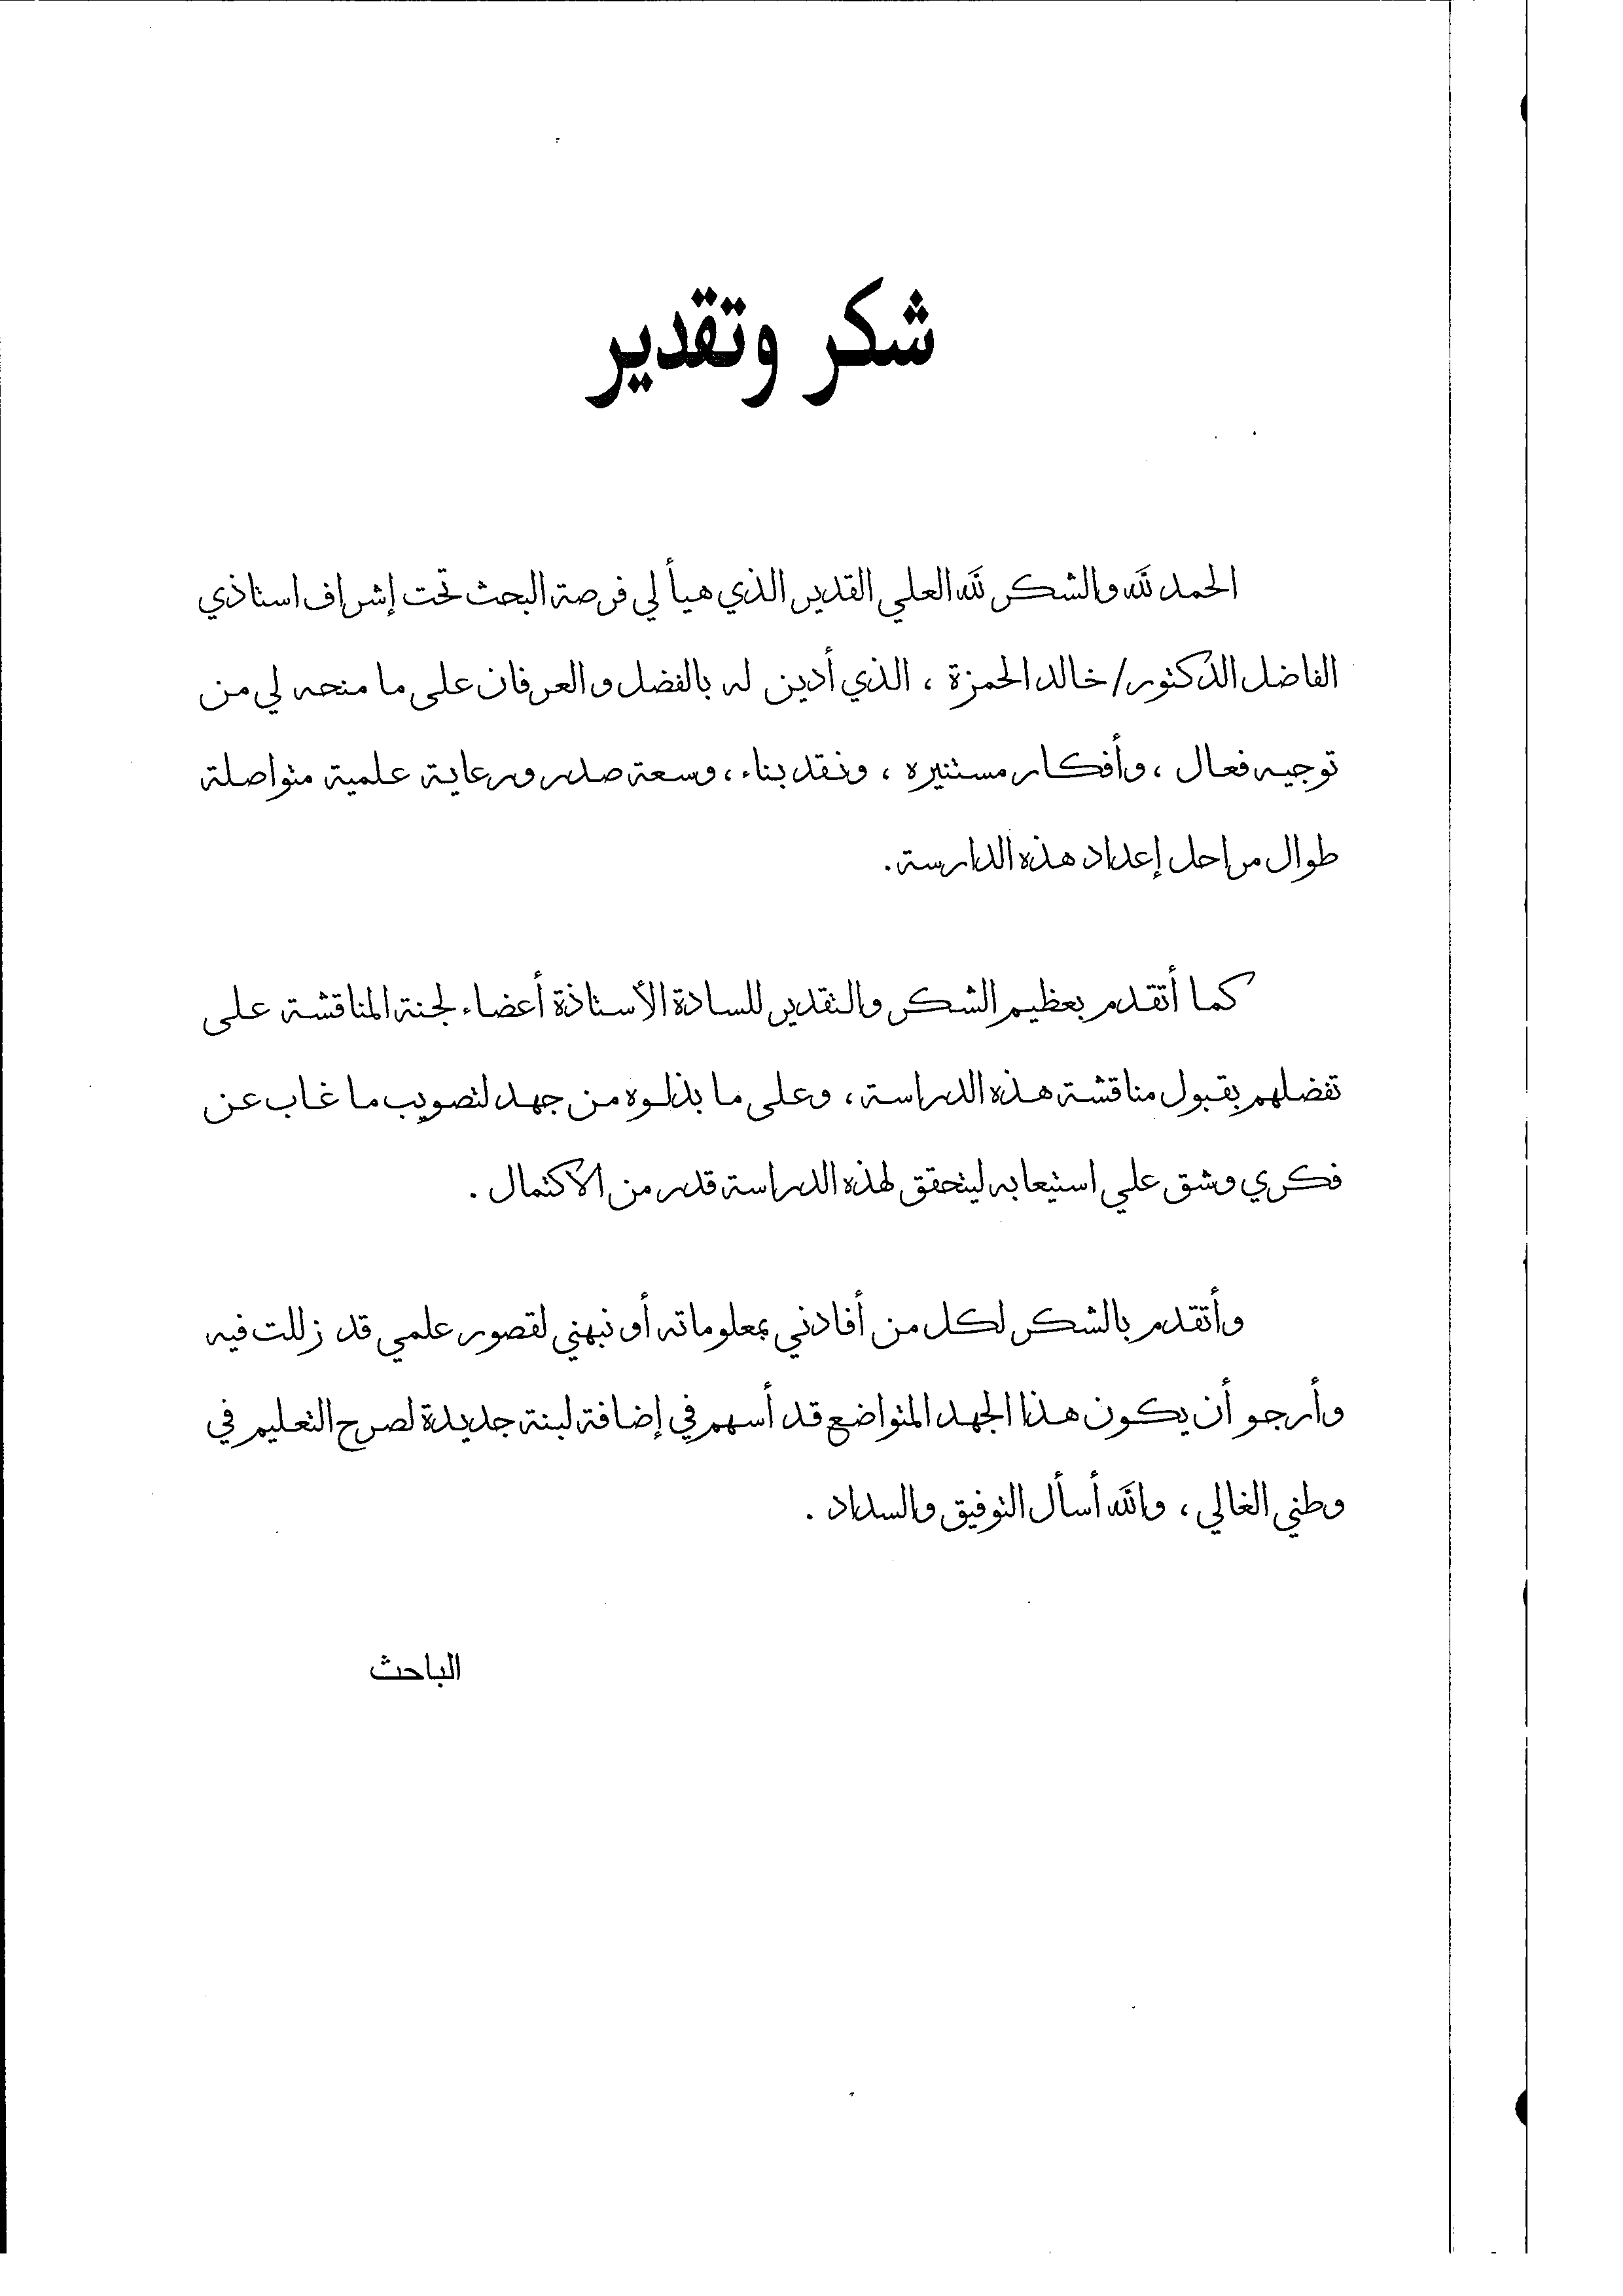 شكر وتقدير
الحمد لله والشكر لله العلي القدير الذي هيأ لي فرصة البحث تحت إشراف استاذي
الفاضل الدكتور/ خالد الحمزة ، الذي أدين له بالفضل والعرفان على ما منحه لي من
توجيه فعال ، وأفكار مستنيره ، ونقد بناء ، وسعة صدر ورعاية علمية متواصلة
طوال مراحل إعداد هذه الدارسة .
كما أتقدم بعظيم الشكر والتقدير للسادة الأستاذة أعضاء لجنة المناقشة على
تفضلهم بقبول مناقشة هذه الدراسة ، وعلى ما بذلوه من جهد لتصويب ما غاب عن
فكري وشق علي استيعابه ليتحقق لهذه الدراسة قدر من الاكتمال .
وأتقدم بالشكر لكل من أفادني بمعلوماته أو نبهني لقصور علمي قد زللت فيه
وأرجو أن يكون هذا الجهد المتواضع قد أسهم في إضافة لبنة جديدة لصرح التعليم في
وطني الغالي ، والله أسأل التوفيق والسداد .
الباحث